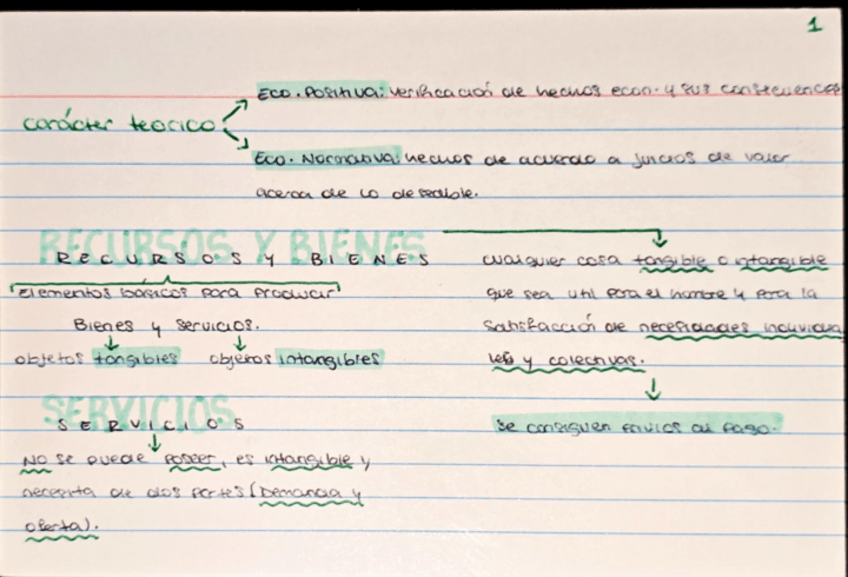 1
Eco. Positiva: verificación de hechos econ. y sus consecuencias
carácter teorico
Eco. Normativa: hechos de acuerdo a juicios de valor
acerca de lo deseable.
RECURSOS Y BIENES
RECURSOS Y BIENES
Elementos básicos para producir
Bienes y servicios.
objetos tangibles objetos intangibles
cualquier cosa tangible o intangible
que sea util para el hombre y para la
satisfacción de necesidades individua
les y colectivas.
se consiguen previos al pago.
SERVICIOS
SERVICIOS
NO se puede poseer, es intangible y
necesita de dos partes (Demanda y
oferta).